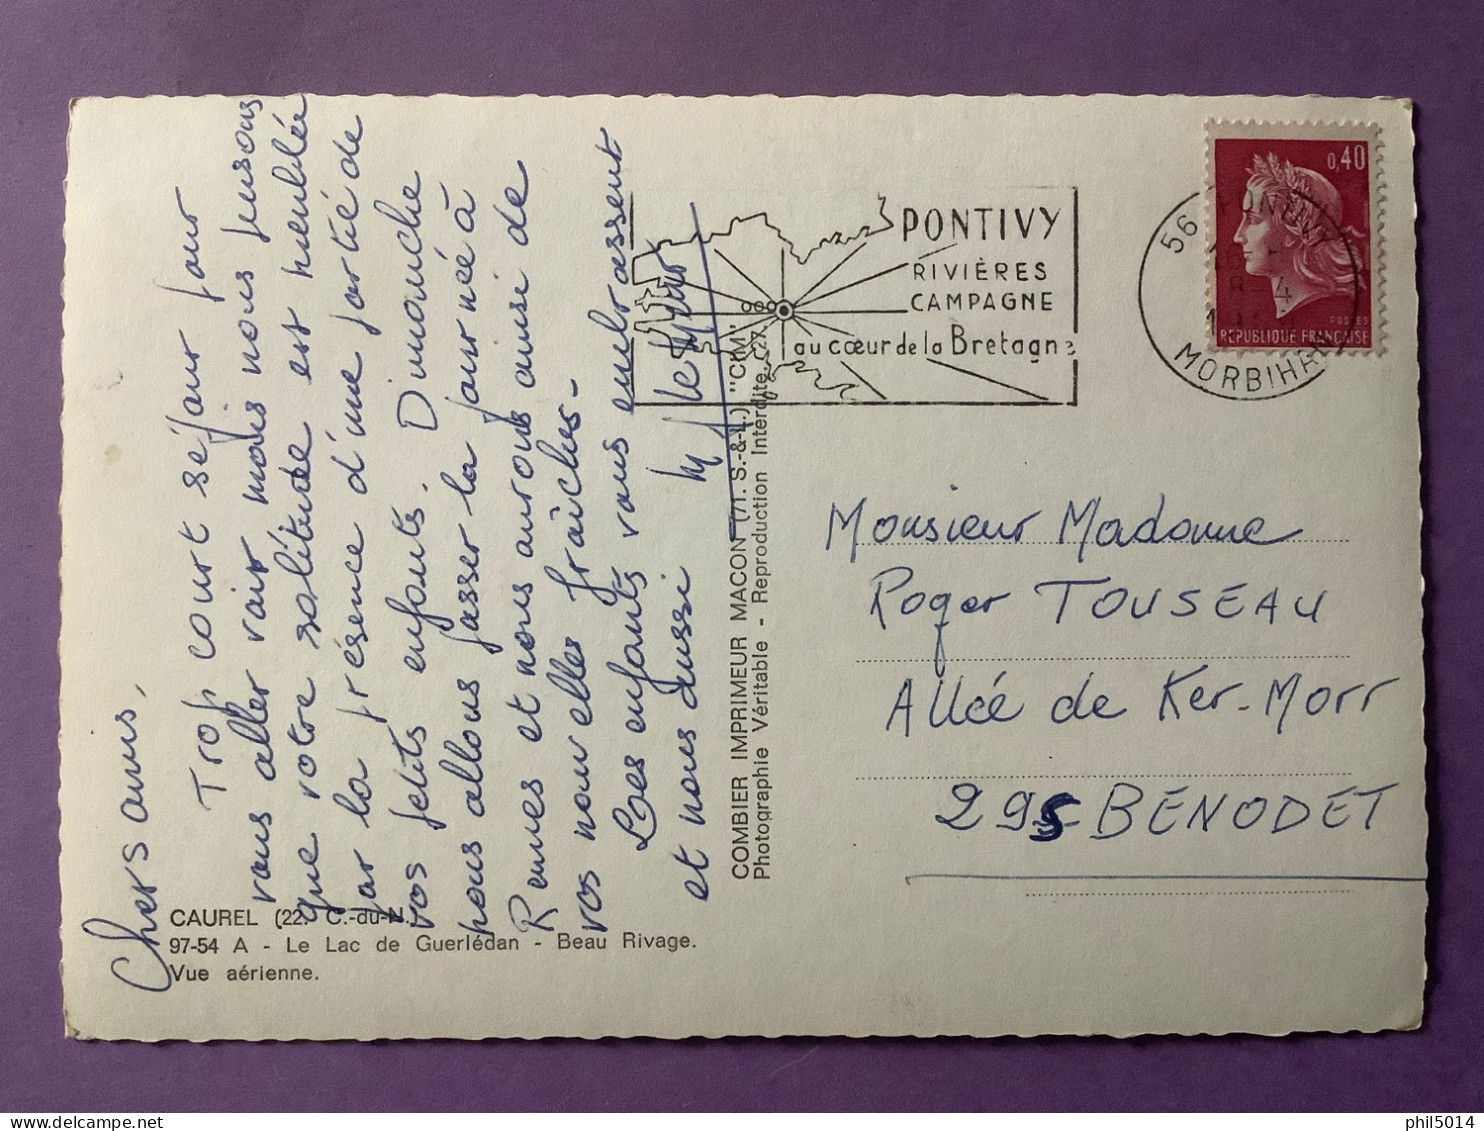 Chers amis,
Trop court séjour pour
vous aller voir mais nous pensons
que votre solitude est meublée
par la présence d'une partie de
vos petits enfants. Dimanche
nous allons passer la journée à
Rennes et nous aurons ainsi de
vos nouvelles fraîches -
Les enfants vous embrassent
et nous aussi
CAUREL (22. C.-du-N.)
97-54 A - Le Lac de Guerlédan - Beau Rivage.
Vue aérienne.
COMBIER IMPRIMEUR MACON (71. S.-&-L.) "CIM"
Photographie Véritable - Reproduction Interdite.
PONTIVY
RIVIÈRES
CAMPAGNE
au cœur de la Bretagne
56 PONTIVY
MORBIHAN
0,40
POSTES
REPUBLIQUE FRANÇAISE
Monsieur Madame
Roger TOUSEAU
Allée de Ker-Morr
29S BENODET
phil5014